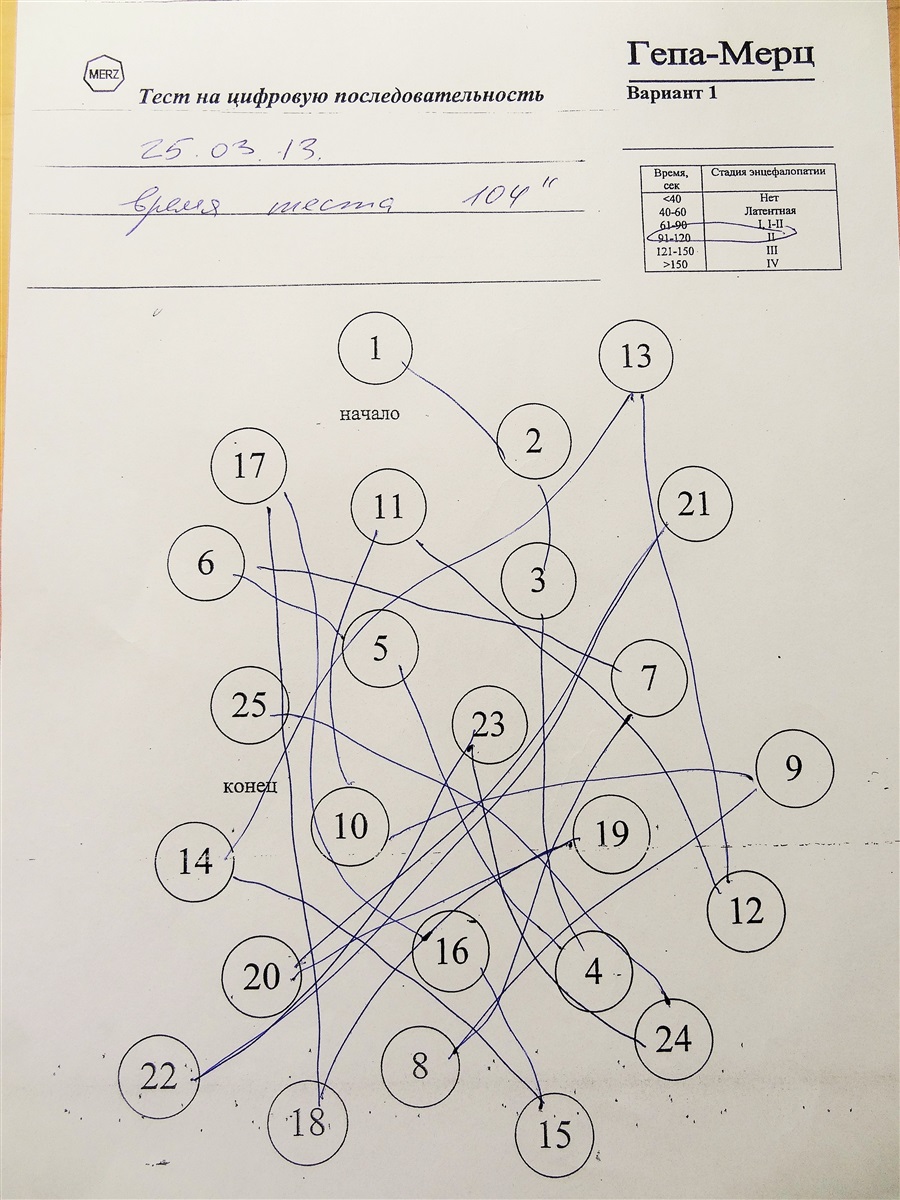 MERZ
Гепа-Мерц
Тест на цифровую последовательность
Вариант 1
25.03.13.
время теста 104"
Время, сек Стадия энцефалопатии
<40 Нет
40-60 Латентная
61-90 I, I-II
91-120 II
121-150 III
>150 IV
1
13
начало
2
17
11
21
6
3
5
7
25
23
9
конец
10
19
14
12
16
20
4
24
22
8
18
15